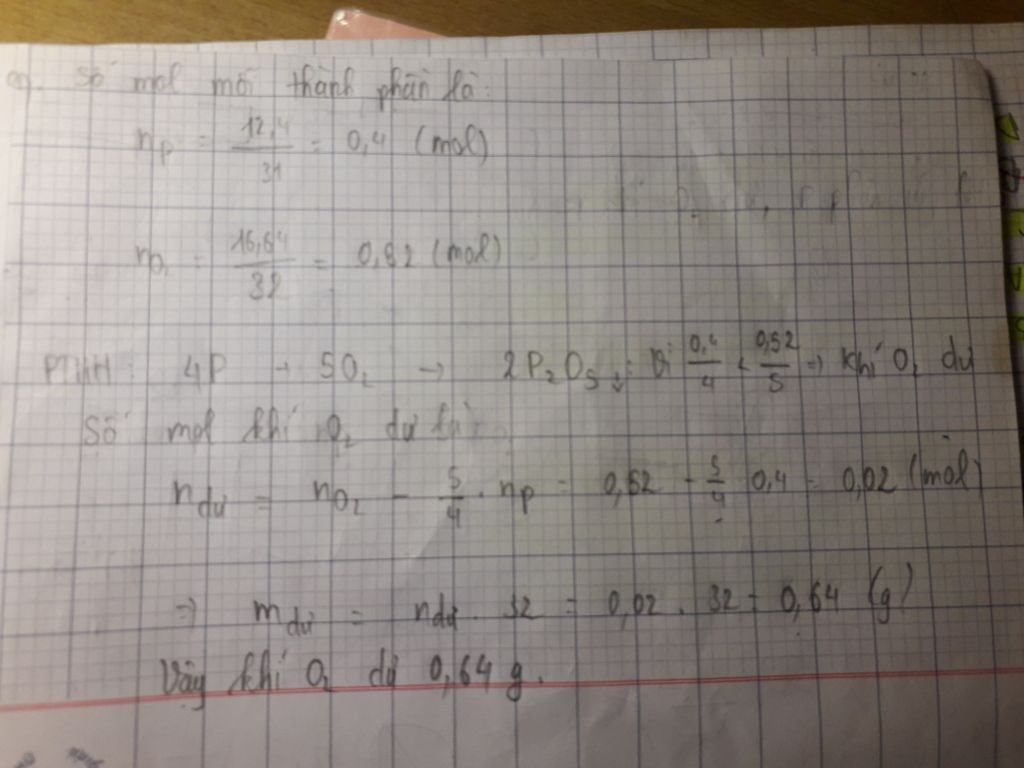 a) Số mol mỗi thành phần là:
nP = 12,4/31 = 0,4 (mol)
nO2 = 16,64/32 = 0,52 (mol)
PTHH: 4P + 5O2 → 2P2O5 : Vì 0,4/4 < 0,52/5 → khí O2 dư
Số mol khí O2 dư là:
ndư = nO2 - 5/4 . nP = 0,52 - 5/4 . 0,4 = 0,02 (mol)
⇒ mdư = ndư . 32 = 0,02 . 32 = 0,64 (g)
Vậy khí O2 dư 0,64 g.